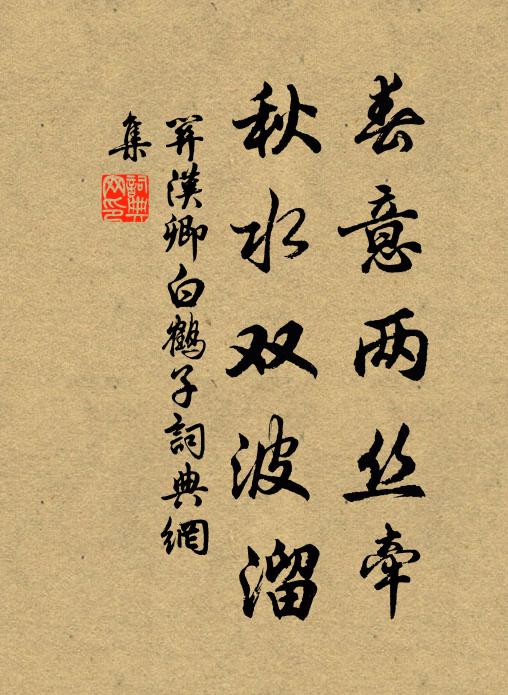 春意两丝牵
秋水双波溜
关漢卿白鶴子詞典網
集
詞典
网印